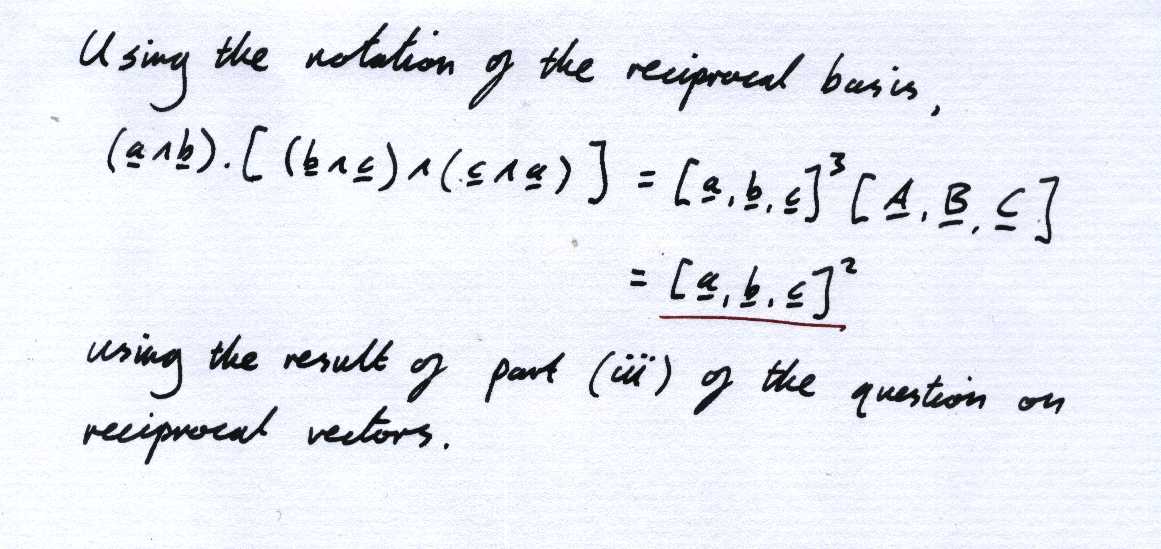 Using the notation of the reciprocal basis,
(a∧b).[(b∧c)∧(c∧a)] = [a,b,c]³[A,B,C]
= [a,b,c]²
using the result of part (iii) of the question on
reciprocal vectors.